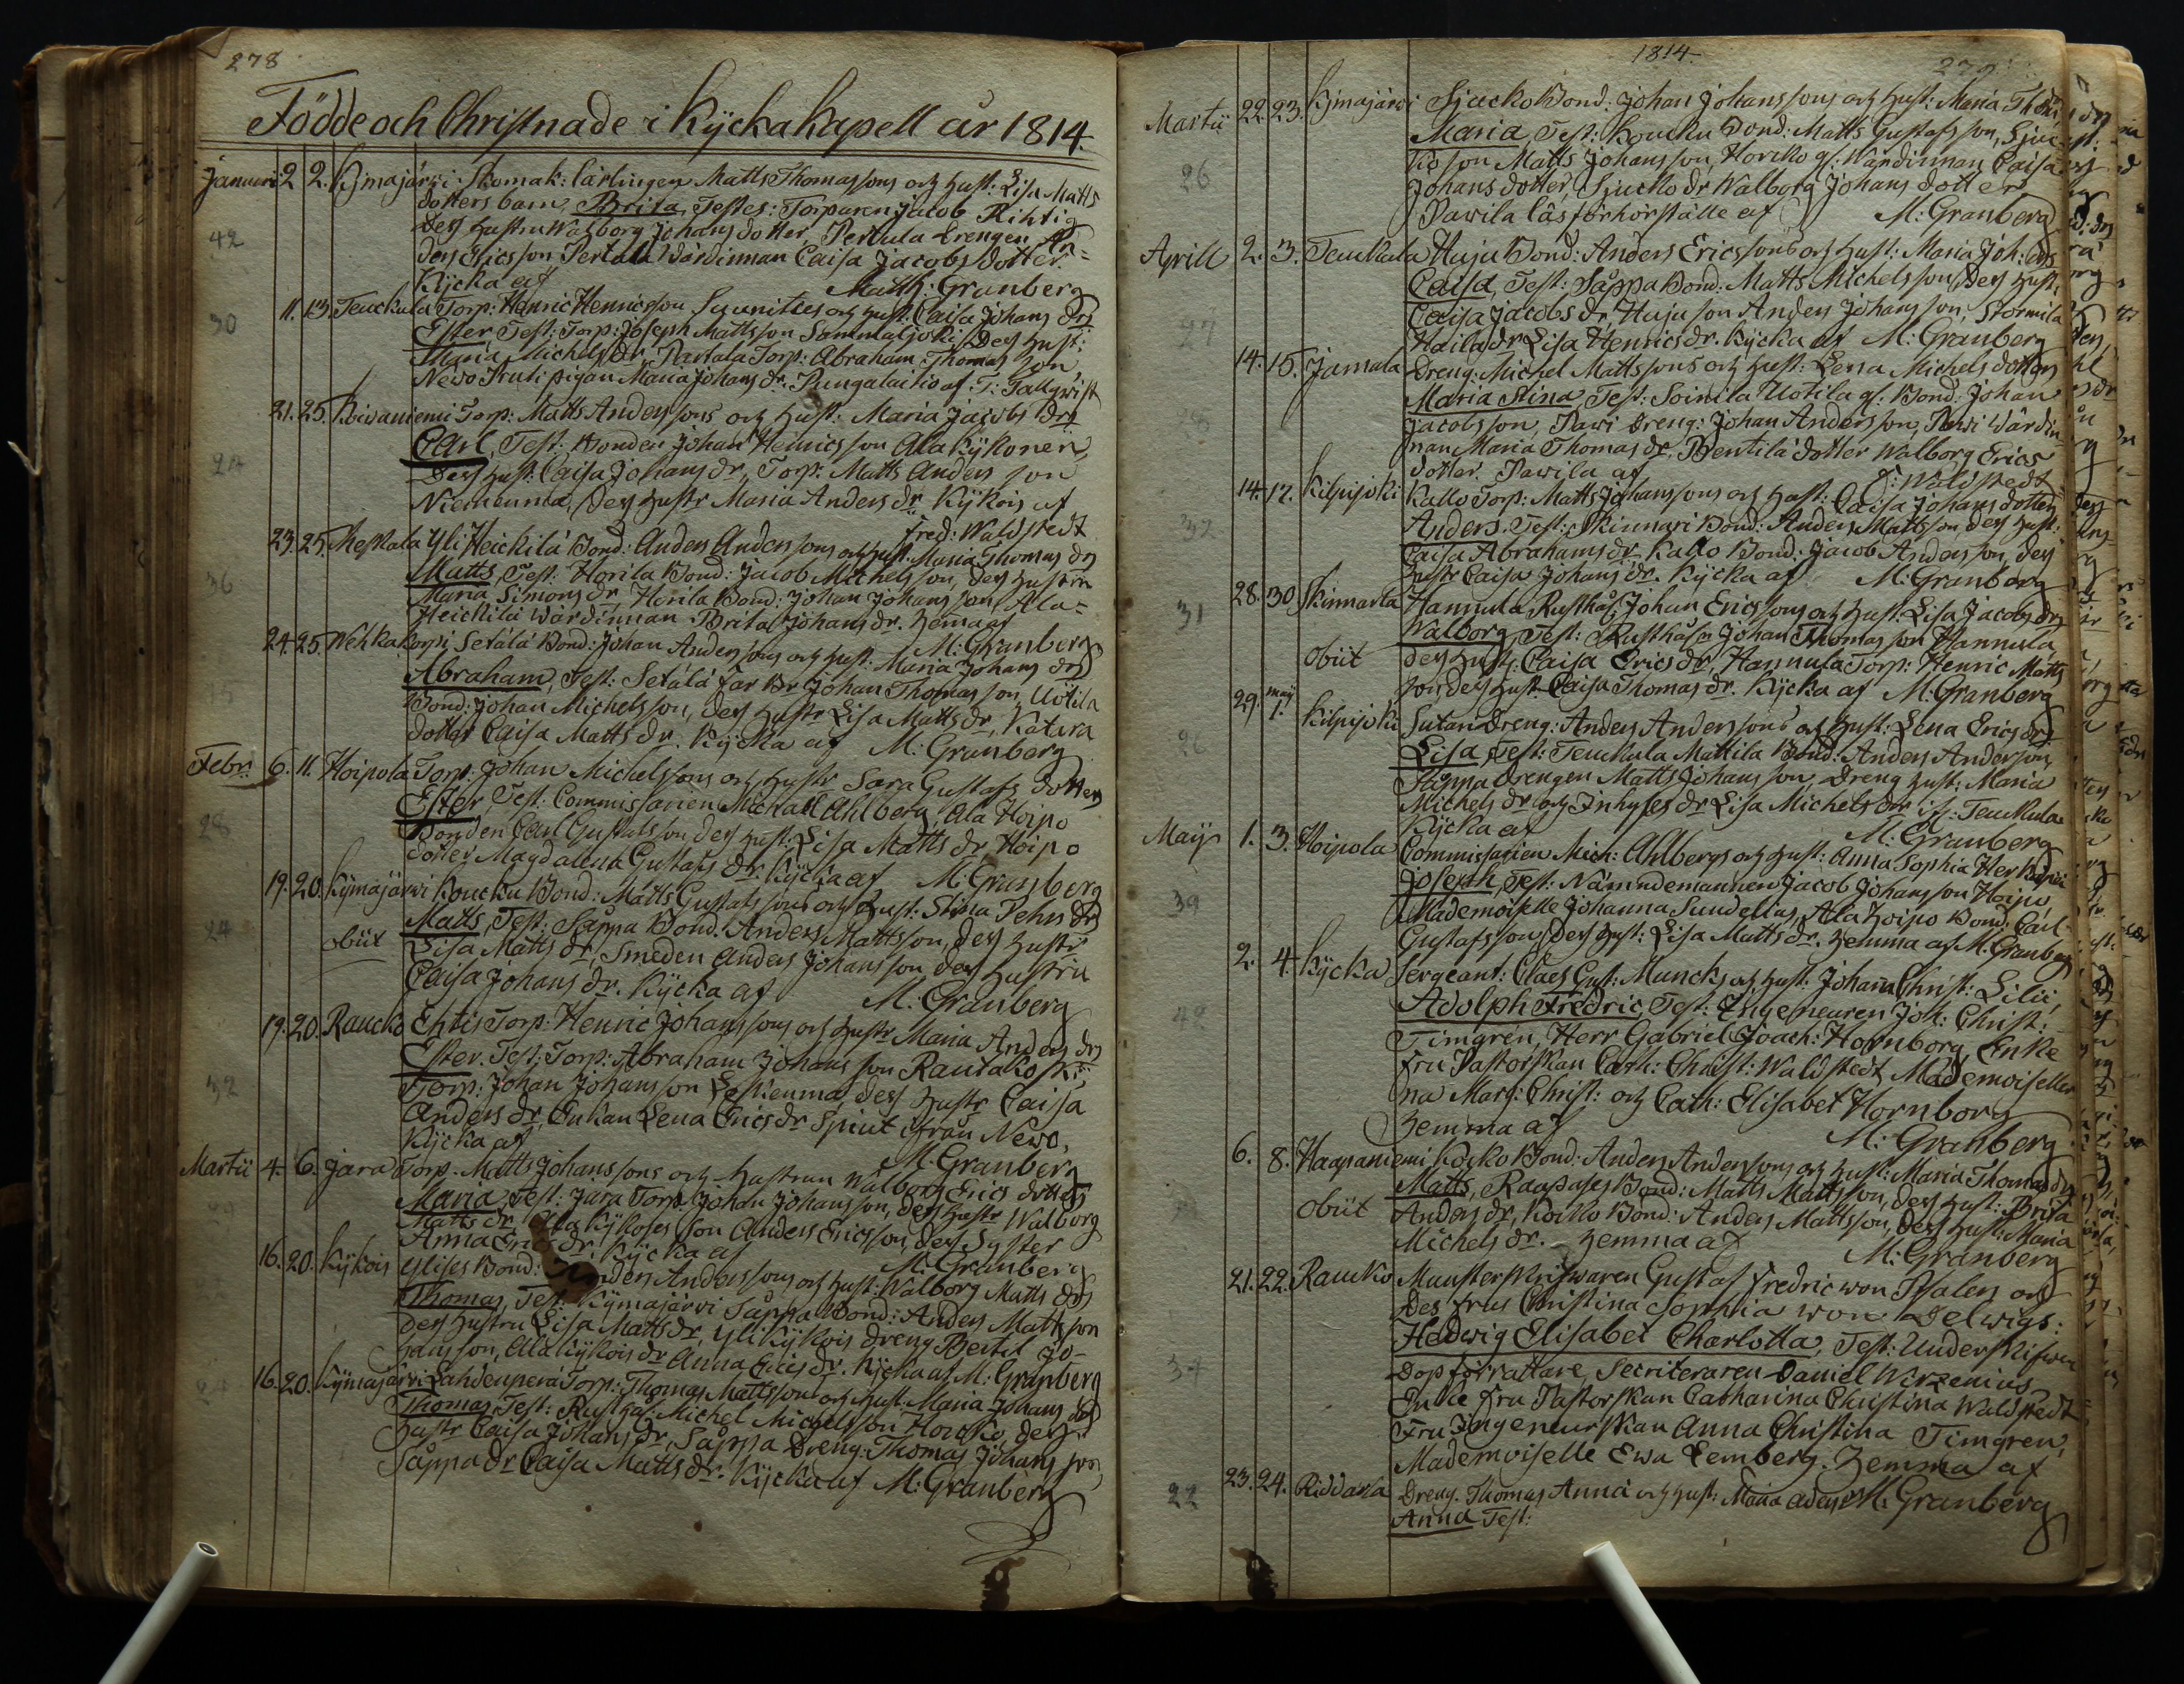 278
Födde och Christnade i Kyckakapell år 1814.
Januari 2 2. Kymajärwi Skomak: lärlingen Matts Thomassons och hust: Lisa Matts
dotters barn, Brita, Testes: Torparen Jacob Rihtig
42 Des hustru Walborg Johans dotter, Pertula drengen An=
ders Ericsson Pertula Wärdinnan Caisa Jacobs dotter
Kycka af Matth: Granberg
11. 13. Teuckula Torp: Henric Henricsson Suunitles och hust: Caisa Johans drs
30 Ester, Test: Torp: Joseph Mattsson Sammaljoki, Des hust:
Maria Michels dr, Pertala Torp: Abraham Thomas son,
Newo Pruti pigan Maria Johans dr. Pungalaitio af T: Tallqwist
21. 25. Koiwaniemi Torp: Matts Anderssons och hust: Maria Jacobs drs
Carl, Test: Bonden Johan Henricsson Ala Kykonen,
27 Des hust: Caisa Johans dr, Torp: Matts Anders son
Niemenma, Des hustr Maria Anders dr Kykois af
Fred: Waldstedt
23. 25. Meskala Yli Heickilä Bond: Anders Anderssons och hust: Maria Thomas drs
Matts, Test: Horila Bond: Jacob Michelsson, des hustru
36 Maria Simons dr, Horila Bond: Johan Johans son, Ala=
Heickilä Wärdinnan Brita Johans dr. hema af
M: Granberg
24. 25. Wehkakorpi Setälä Bond: Johan Anderssons och hust: Maria Johans drs
Abraham, Test: Setälä far Br Johan Thomas son, Uotila
Bond: Johan Michelsson, des hustr Lisa Matts dr, Katara
dotter Caisa Matts dr. Kycka af M: Granberg
Febr: 6. 11. Hoipola Torp: Johan Michelssons och hustr Sara Gustafs dotters
Ester Test: Commissarien Michall Ahlberg, Ala Hoipo
28 Bonden Carl Gustafsson des hust: Lisa Matts dr Hoipo
dotter Magdalena Gustafs dr. Kycka af M: Granberg
19. 20. Kymajärwi Koucku Bond: Matts Gustafssons och hust: Stina Pehrs drs
24 Matts, Test: Såppa Bond: Anders Mattsson, des hustr
obiit Lisa Matts dr, Smeden Anders Johansson des hustru
Caisa Johans dr. Kycka af M: Granberg
19. 20. Raucko Ehtis Torp: Henric Johanssons och hustr Maria Anders drs
Ester. Test: Torp: Abraham Johans son Rautakoski,
32 Torp: Johan Johansson Leskenma, des hustr Caisa
Anders dr, Enkan Lena Erics dr Spirut ifrån Newo,
Kycka af M: Granberg
Martii 4. 6. Jara Torp. Matts Johanssons och hustrun Walborg Erics dotters
Maria, Test: Jara Torp: Johan Johansson, des hustr Walborg
Matts dr, Ala Kykoses son Anders Ericsson, des Syster
Anna Erics dr. Kycka af M: Granberg
16. 20. Kykois Ylises Bond: Anders Anderssons och hust: Walborg Matts drs
Thomas, Test: Kymajärwi Såppa Bond: Anders Matts son
des hustru Lisa Matts dr, Yli Kykois dreng Bertil Jo-
hansson, Ala Kykois dr Anna Erics dr. Kycka af M: Granberg
16. 20. Kymajärwi Lahdenperä Torp: Thomas Mattsson och hust: Maria Johans drs
Thomas, Test: Rusthål: Michel Michelsson Horcko, des
hustr Caisa Johans dr, Såppa Dreng: Thomas Johans son,
Såppa dr Caisa Matts dr. Kycka af M: Granberg
1814. 279
Martii 22. 23. Kymajärwi Sjucko Bond: Johan Johanssons och hust: Maria Thom: drs
Maria, Test: Koucku Bond: Matts Gustafsson, Sjuc-
26 ko son Matts Johansson, Horcko gl: Wärdinnan Caisa
Johans dotter, Sjucko dr Walborg Johans dotter
Pawila läsförhörställe af M: Granberg
Aprill 2. 3. Teuckula Huju Bond: Anders Ericssons och hust: Maria Joh: drs
Caisa, Test: Såppa Bond: Matts Michelsson, Des hust:
27 Caisa Jacobs dr, Huju son Anders Johansson, Stormila
Haila dr Lisa Henrics dr. Kycka af M: Granberg
14. 15. Jamala Dreng: Michel Mattssons och hust: Lena Michels dotters
Maria Stina, Test: Soinila Uotila gl: Bond: Johan
28 Jacobsson, Pawi dreng: Johan Andersson, Pawi Wärdin
nan Maria Thomas dr, Pentilä dotter Walborg Erics
dotter. Pawila af F: Waldstedt
14. 17. Kilpijoki Kallo Torp: Matts Johanssons och hust: Caisa Johans dotters
37 Anders. Test: Skinnari Bond: Anders Mattsson, des hust:
Caisa Abrahams dr, Kallo Bond: Jacob Andersson, des
hustr Caisa Johans dr. Kycka af M: Granberg
28. 30 Skinnarla Hannula Rusthål: Johan Ericssons och hust: Lisa Jacobs drs
31 Walborg, Test: Rusthålln Johan Thomas son Hannula,
obiit des hust: Caisa Erics dr, Hannula Torp: Henric Matts
son, des hust: Caisa Thomas dr. Kycka af M: Granberg
29. may 1. Kilpijoki Sutari Dreng: Anders Anderssons och hust: Lena Erics drs
26 Lisa, Test: Teuckula Mattila Bond: Anders Andersson,
Såppa drengen Matts Johans son, Dreng hust: Maria
Michels dr och Inhyses dr Lisa Michels dr if: Teuckula
Kycka af M: Granberg
Maij 1. 3. Hoipola Commissarien Mich: Ahlbergs och hust: Anna Sophia
39 Joseph, Test: Nämndemannen Jacob Johansson Hoipo,
Mademoiselle Johanna Sundelius, Ala Hoipo Bond: Carl
Gustafsson, des hust: Lisa Matts dr. hemma af M: Granberg
2. 4. Kycka Sergeant: Claes Gust: Muncks och hust: Johana Christ: Lilii,
Adolph Fredric, Test: Ingeneuren Joh: Christ:
42 Timgren, Herr Gabriel Joach: Hornborg, Enke
Fru Pastorskan Cath: Christ: Waldstedt, Mademoiseller
na Marg: Christ: och Cath: Elisabet Hornborg
hemma af M: Granberg
6. 8. Haapaniemi Kocko Bond: Anders Anderssons och hust: Maria Thomas drs
Matts, Raapases Bond: Matts Mattsson, des hust: Brita
obiit Anders dr, Kocko Bond: Anders Mattsson, des hust: Maria
Michels dr. hemma af M: Granberg
21. 22. Raucko Munsterskrifwaren Gustaf Fredric von Thalen och
Des frus Christina Sophia von Delwigs:
Hedwig Elisabet Charlotta, Test: Underskrifwen
37 Dopförrättare, Secriteraren Daniel Wirzenius,
Enke Fru Pastorskan Catharina Christina Waldstedt
Fru Ingeneurskan Anna Christina Timgren,
Mademoiselle Ewa Lemberg. hemma af
M: Granberg
23. 24. Riddarla Dreng. Thomas Anna och hust: Maria
22 Anna Test: